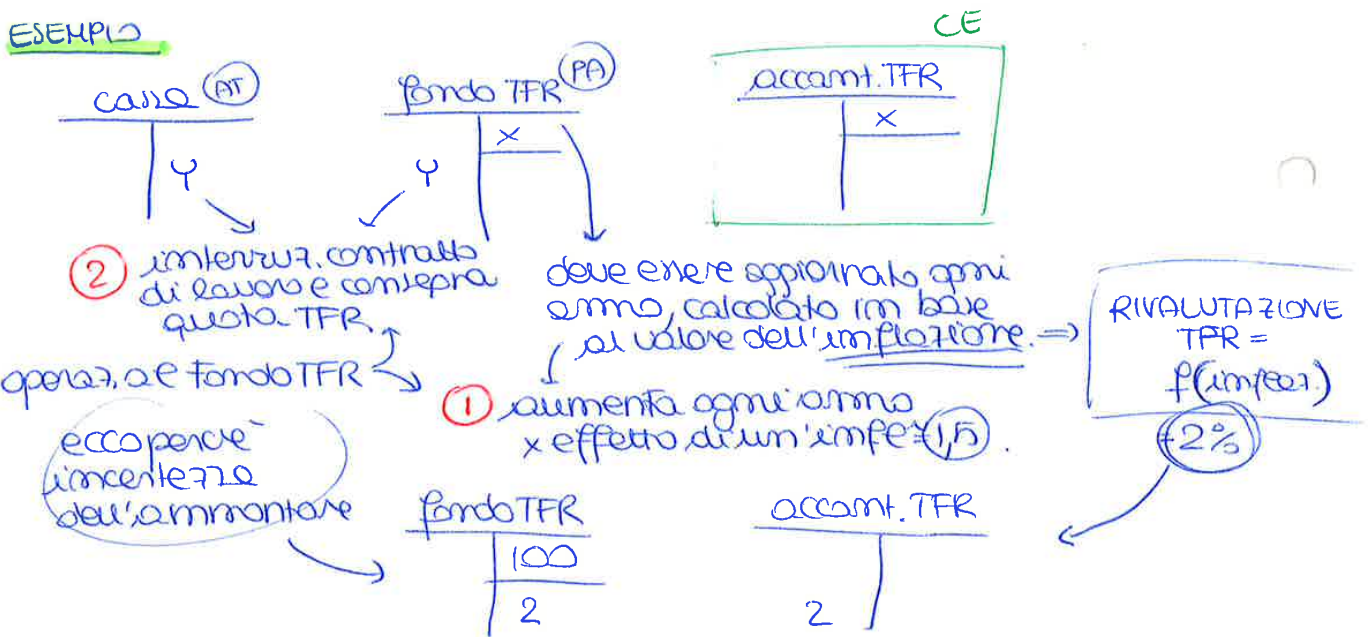 ESEMPIO
CE
cassa AT
fondo TFR PA
accant. TFR
Y
Y
x
x
2 interruz. contratto
di lavoro e consegna
quota TFR
deve essere aggiornato ogni
anno, calcolato in base
al valore dell'inflazione. =>
RIVALUTAZIONE
TFR =
f(inflaz.)
+2%
operaz. al fondo TFR
1 aumenta ogni anno
x effetto di un'infl+1,5.
ecco perchè
incertezza
dell'ammontare
fondo TFR
accant. TFR
100
2
2